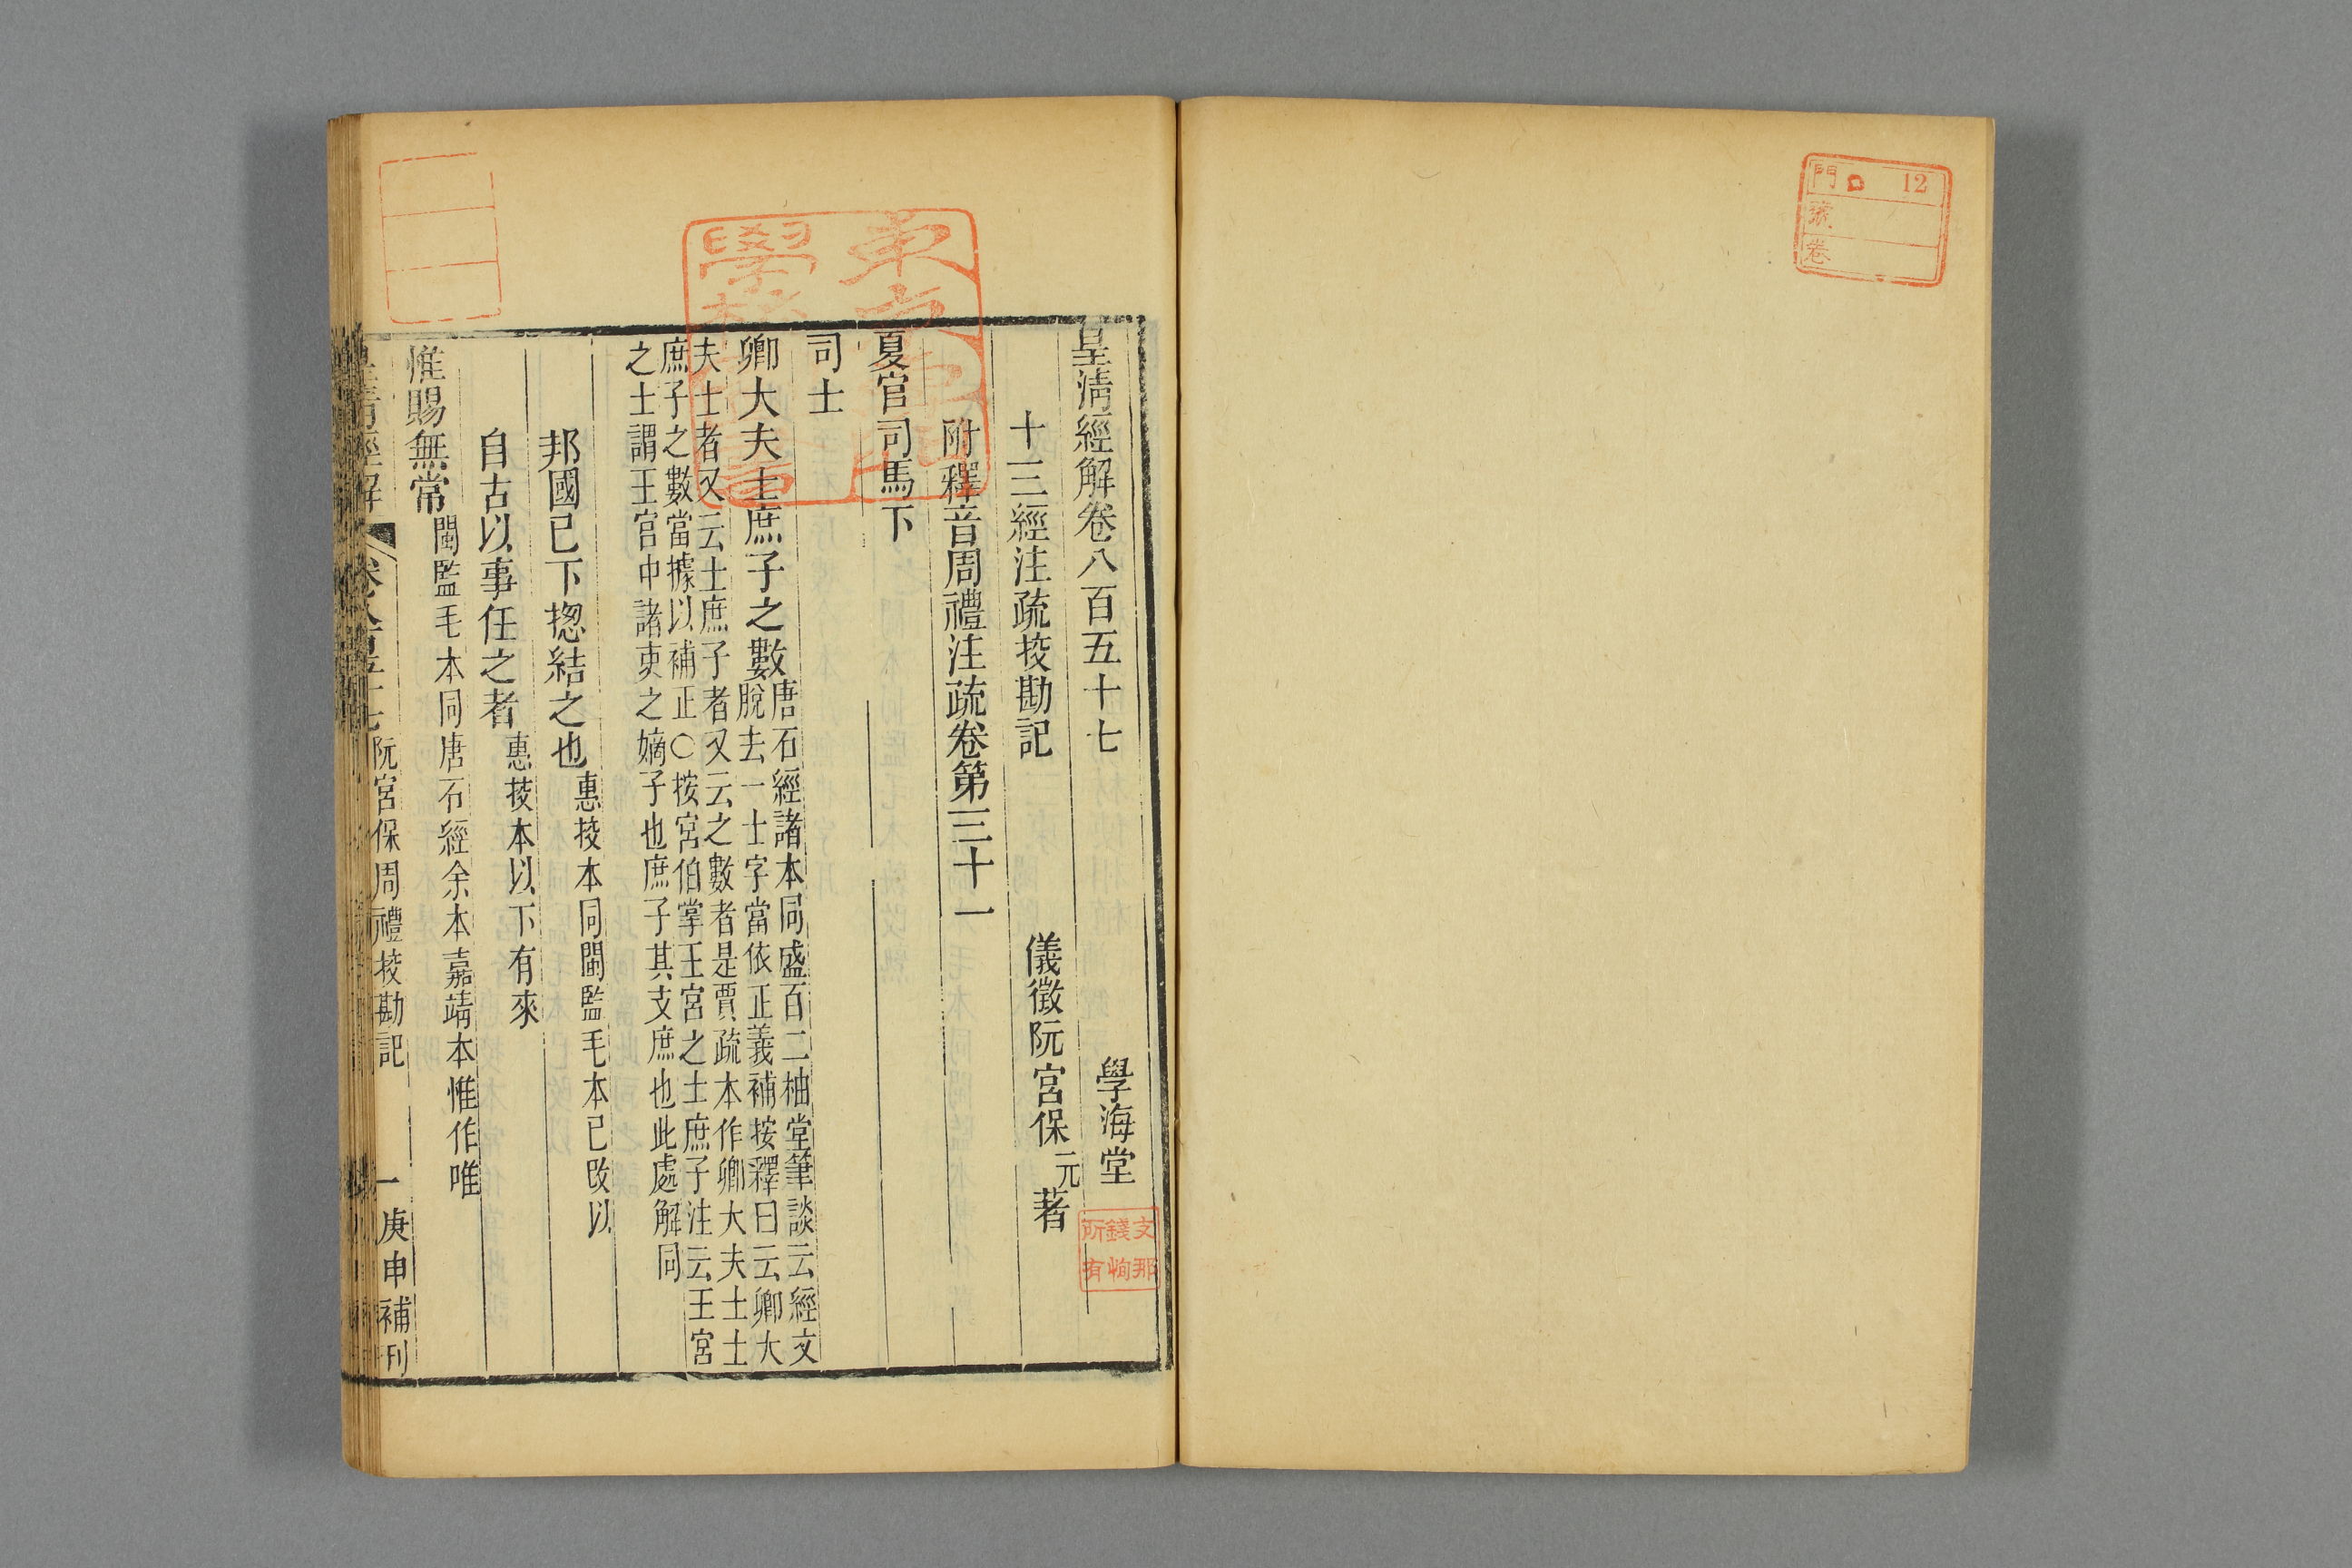 門 12
號
卷
皇清經解卷八百五十七
學海堂
支那
錢恂
所有
十三經注疏挍勘記
儀徵阮宮保元著
附釋音周禮注疏卷第三十一
夏官司馬下
司士
卿大夫士庶子之數
唐石經諸本同盛百二柚堂筆談云經文
脫去一士字當依正義補按釋曰云卿大
夫士者又云士庶子者又云之數者是賈疏本作卿大夫士士
庶子之數當據以補正○按宮伯掌王宮之士庶子注云王宮
之士謂王宮中諸吏之嫡子也庶子其支庶也此處解同
邦國已下揔結之也惠挍本同閩監毛本已改以
自古以事任之者惠挍本以下有來
惟賜無常閩監毛本同唐石經余本嘉靖本惟作唯
皇清經解
卷八百五十七
阮宮保周禮挍勘記
一
庚申補刊